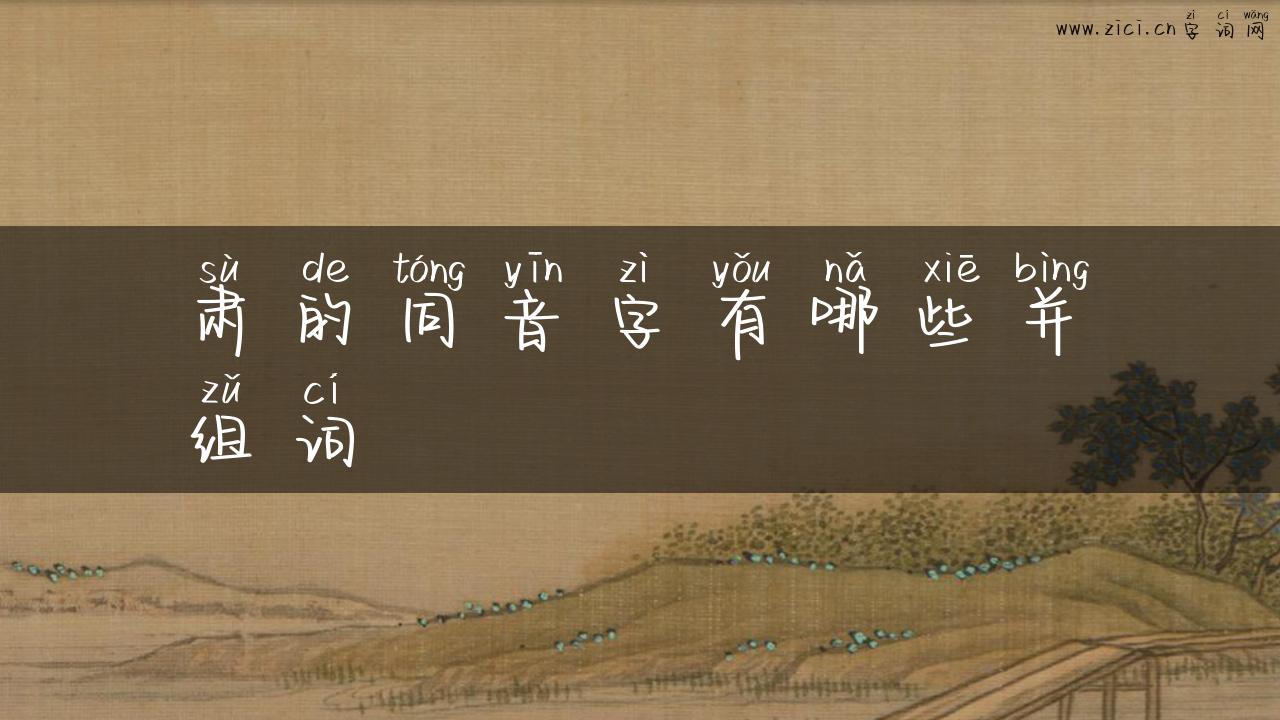 zì cí wǎng
www.zici.cn字词网
sù de tóng yīn zì yǒu nǎ xiē bìng
肃的同音字有哪些并
zǔ cí
组词